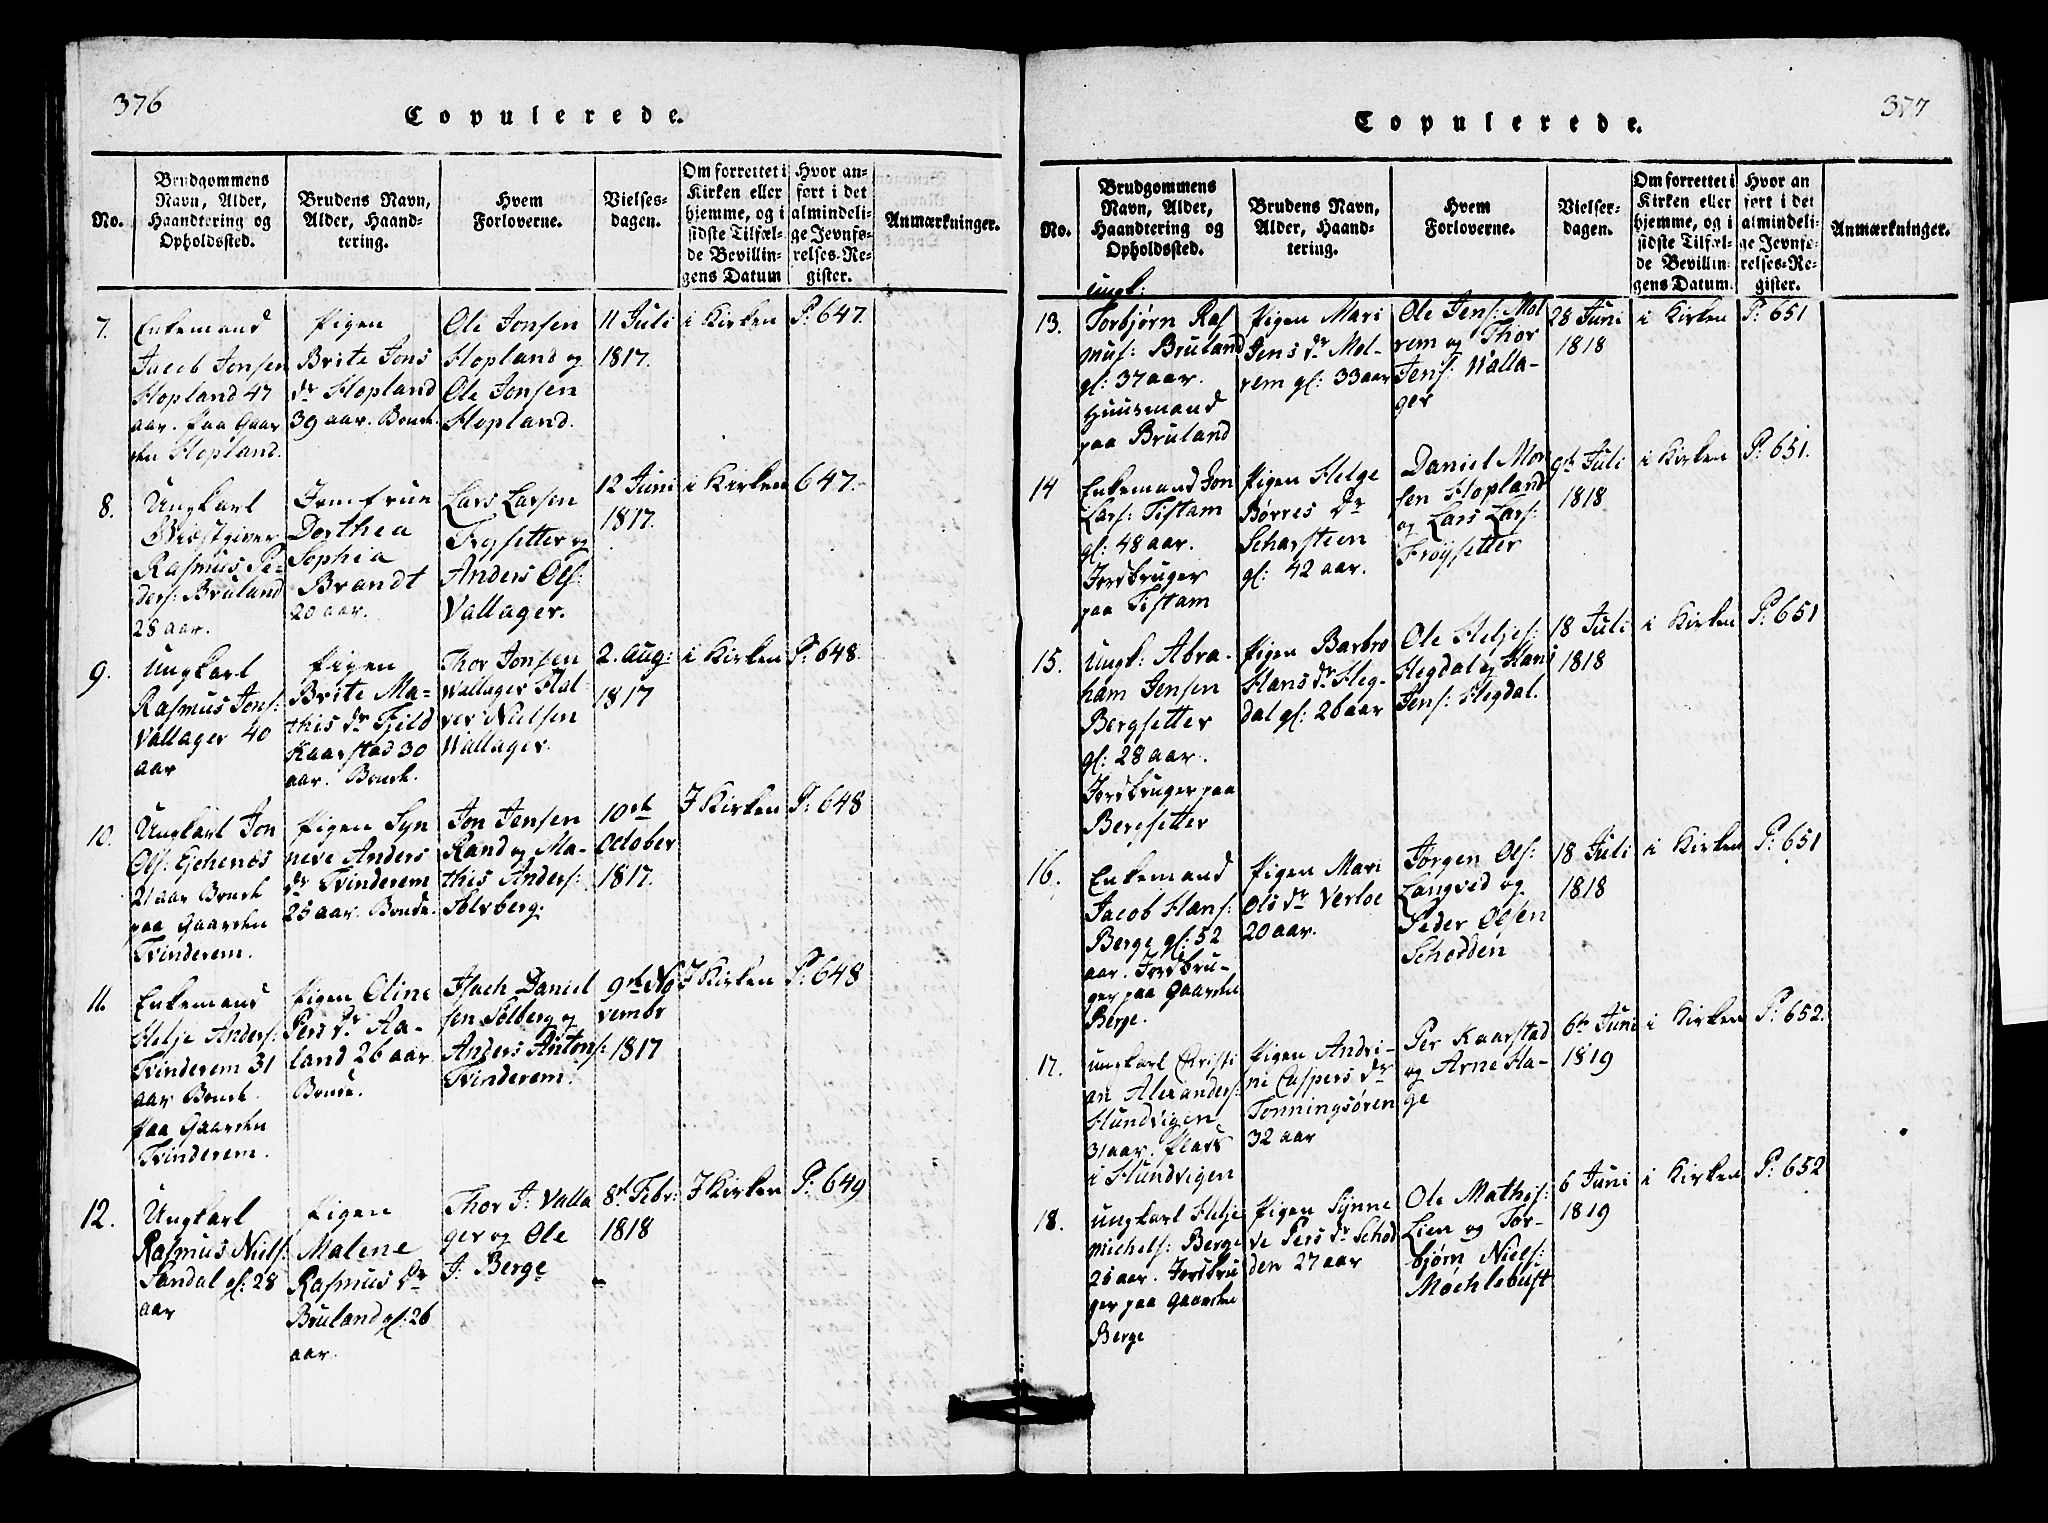 376
Copulerede.
No.
Brudgommens
Navn, Alder,
Haandtering og
Opholdssted.
Brudens Navn,
Alder, Haand-
tering.
Hvem
Forloverne.
Vielses-
dagen.
Om forrettet i
Kirken eller
hjemme, og i
sidste Tilfæl-
de Bevillin-
gens Datum
Hvor an-
ført i det
almindeli-
ge Jevnfø-
relses-Re-
gister.
Anmærkninger.
7.
Enkemand
Jacob Jonsen
Hopland 47
aar. paa Gaar
den Hopland.
Pigen
Brite Jons
dr Hopland
39 aar. Bonde.
Ole Jonsen
Hopland og
Ole Jonsen
Hopland.
11 Juli
1817.
i Kirken
P: 647.
8.
Ungkarl
Giæstgiver
Rasmus Pe-
ders: Bruland
28 aar.
Jomfrue
Dorthea
Sophia
Brandt
20 aar.
Lars Larsen
Frøysetter og
Anders Ols:
Vallager.
12 Juni
1817.
i Kirken
647.
9.
Ungkarl
Rasmus Jons:
Vallager 40
aar
Pigen
Brite Ma-
this dr Fjeld
Kaarstad 30
aar. Bonde.
Thor Jonsen
Wallager Hal-
vor Nielsen
Wallager.
2. aug:
1817
i Kirken
P: 648.
10.
Ungkarl Jon
Ols: Gjehenes
21 aar Bonde
paa Gaarden
Tvinderem.
Pigen Syn
neve Anders
dr Tvinderem
25 aar. Bonde.
Jon Jensen
Rand og Ma-
this Anders:
Solvberg.
10de
October
1817.
I Kirken
P: 648
11.
Enkemand
Helje Anders:
Tvinderem 31
aar Bonde.
paa Gaarden
Tvinderem.
Pigen Oline
Pers dr Aa-
land 26 aar.
Bonde.
Isach Daniel
sen Solberg og
Anders Antons:
Tvinderem.
9de No
vembr
1817
I Kirken
P: 648
12.
Ungkarl
Rasmus Niels:
Sandal gl: 28
aar
Pigen
Malene
Rasmus dr
Bruland gl: 26
aar.
Thor J: Valla
ger og Ole
J: Berge
8de Febr:
1818
I Kirken
P: 649
377
Copulerede.
No.
Brudgommens
Navn, Alder,
Haandtering og
Opholdssted.
Brudens Navn,
Alder, Haand-
tering.
Hvem
Forloverne.
Vielser-
dagen.
Om forrettet i
Kirken eller
hjemme, og i
sidste Tilfæl-
de Bevillin-
gens Datum.
Hvor an
ført i det
almindeli-
ge Jevnfø-
relses-Re-
gister.
Anmærkninger.
13.
Ungk:
Torbjørn Ras
mus: Bruland
gl: 37 aar.
Huusmand
paa Bruland
Pigen Mari
Jens dr Mol-
rem gl: 33 aar
Ole Jens: Mol
rem og Thor
Jens: Walla-
ger
28 Juni
1818
i Kirken
P: 651
14
Enkemand Jon
Lars: Tistam
gl: 48 aar.
Jordbruger
paa Tistam
Pigen Helge
Børres dr
Scharsteen
gl: 42 aar.
Daniel Mon
sen Hopland
og Lars Lars:
Frøysetter
9de Juli
1818
i Kirken
P: 651.
15.
Ungk: Abra-
ham Jensen
Bergsetter
gl: 28 aar.
Jordbruger paa
Bergsetter
Pigen Barbro
Hans dr Heg-
dal gl: 26 aar
Ole Heljes:
Hegdal og Hans
Jens: Hegdal.
18 Juli
1818
i Kirken
P: 651
16.
Enkemand
Jacob Hans:
Berge gl: 52
aar. Jordbru-
ger paa Gaarden
Berge.
Pigen Mari
Ols dr Verloe
20 aar.
Jørgen Ols:
Langved og
Peder Olsen
Schodden
18 Juli
1818
i Kirken
P: 651
17.
ungkarl Christi
an Alexanders:
Hundvigen
31 aar. Plads
i Hundvigen
Pigen Andri-
ne Caspers dr
Tonningsøren
32 aar
Per Kaarstad
og Arne Ha-
ge
6te Juni
1819
i Kirken
P: 652.
18.
ungkarl Helje
Michels: Berge
25 aar. Jordbru
ger paa Gaarden
Berge
Pigen Synne
ve Pers dr Schod
den 27 aar
Ole Mathis:
Lien og Tor-
bjørn Niels:
Mochlebust
6 Juni
1819
i Kirken
P: 652